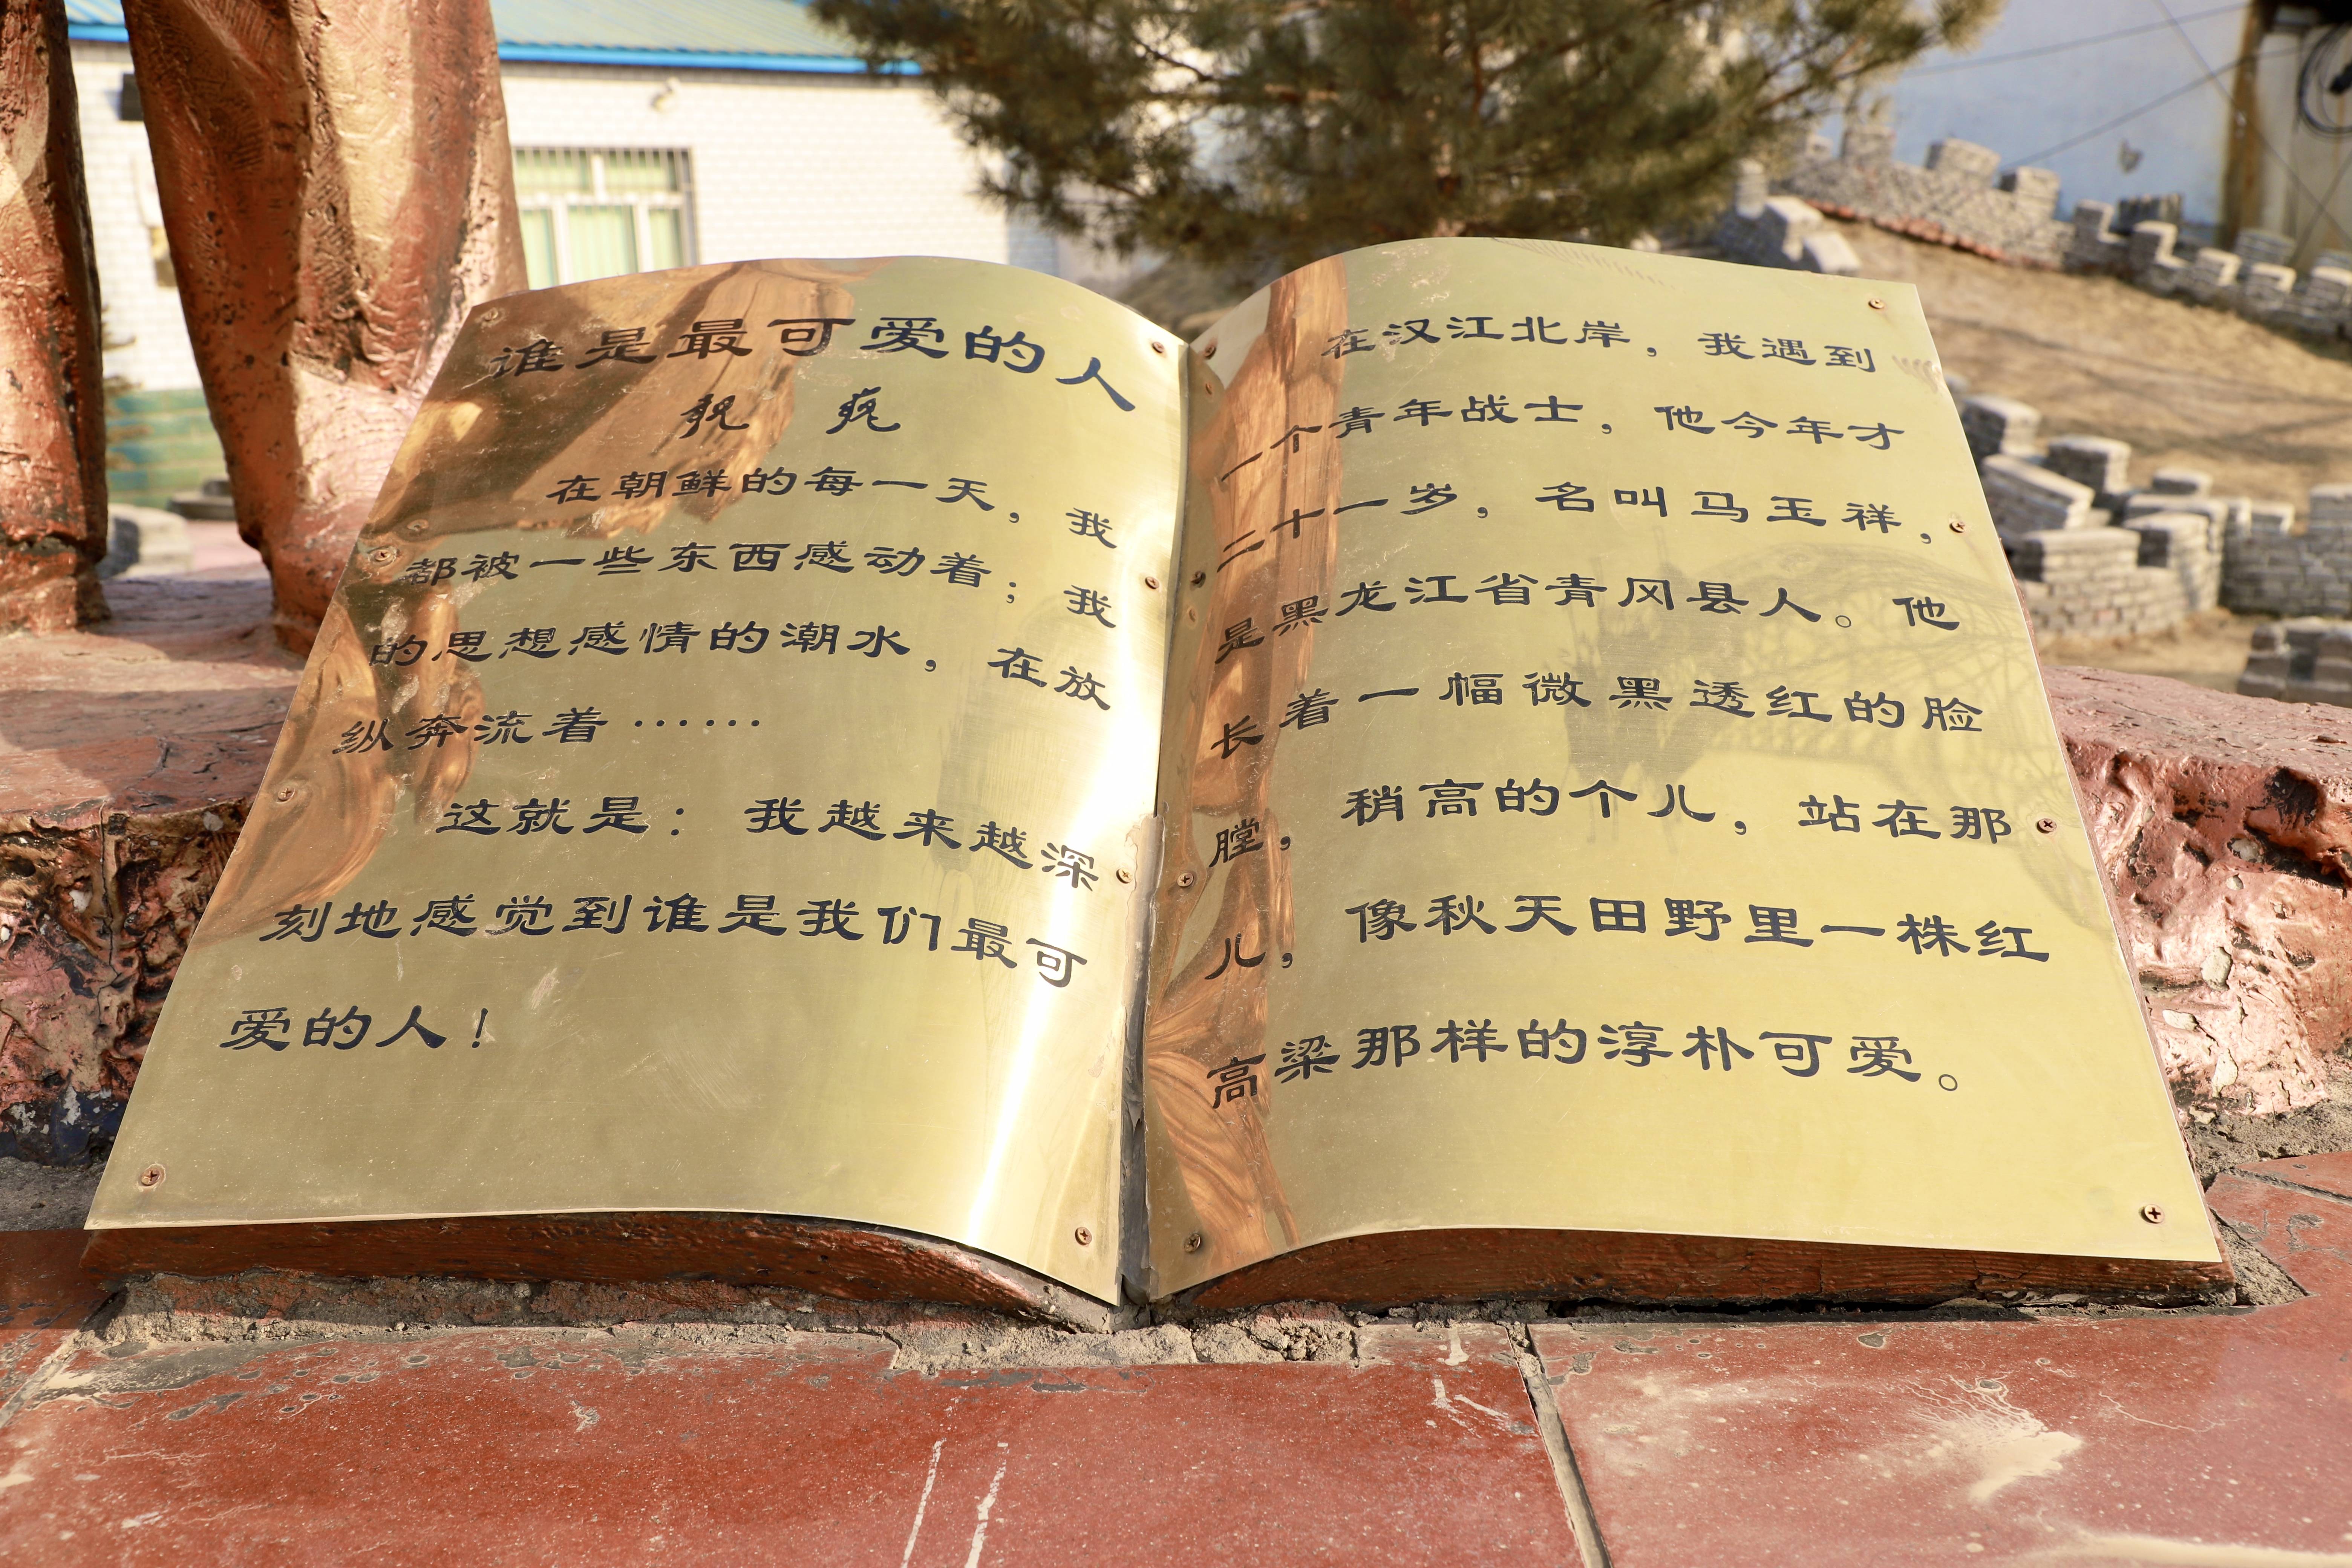 谁是最可爱的人
魏 巍
在朝鲜的每一天，我
都被一些东西感动着；我
的思想感情的潮水，在放
纵奔流着……
这就是：我越来越深
刻地感觉到谁是我们最可
爱的人！
在汉江北岸，我遇到
一个青年战士，他今年才
二十一岁，名叫马玉祥，
是黑龙江省青冈县人。他
长着一幅微黑透红的脸
膛，稍高的个儿，站在那
儿，像秋天田野里一株红
高梁那样的淳朴可爱。